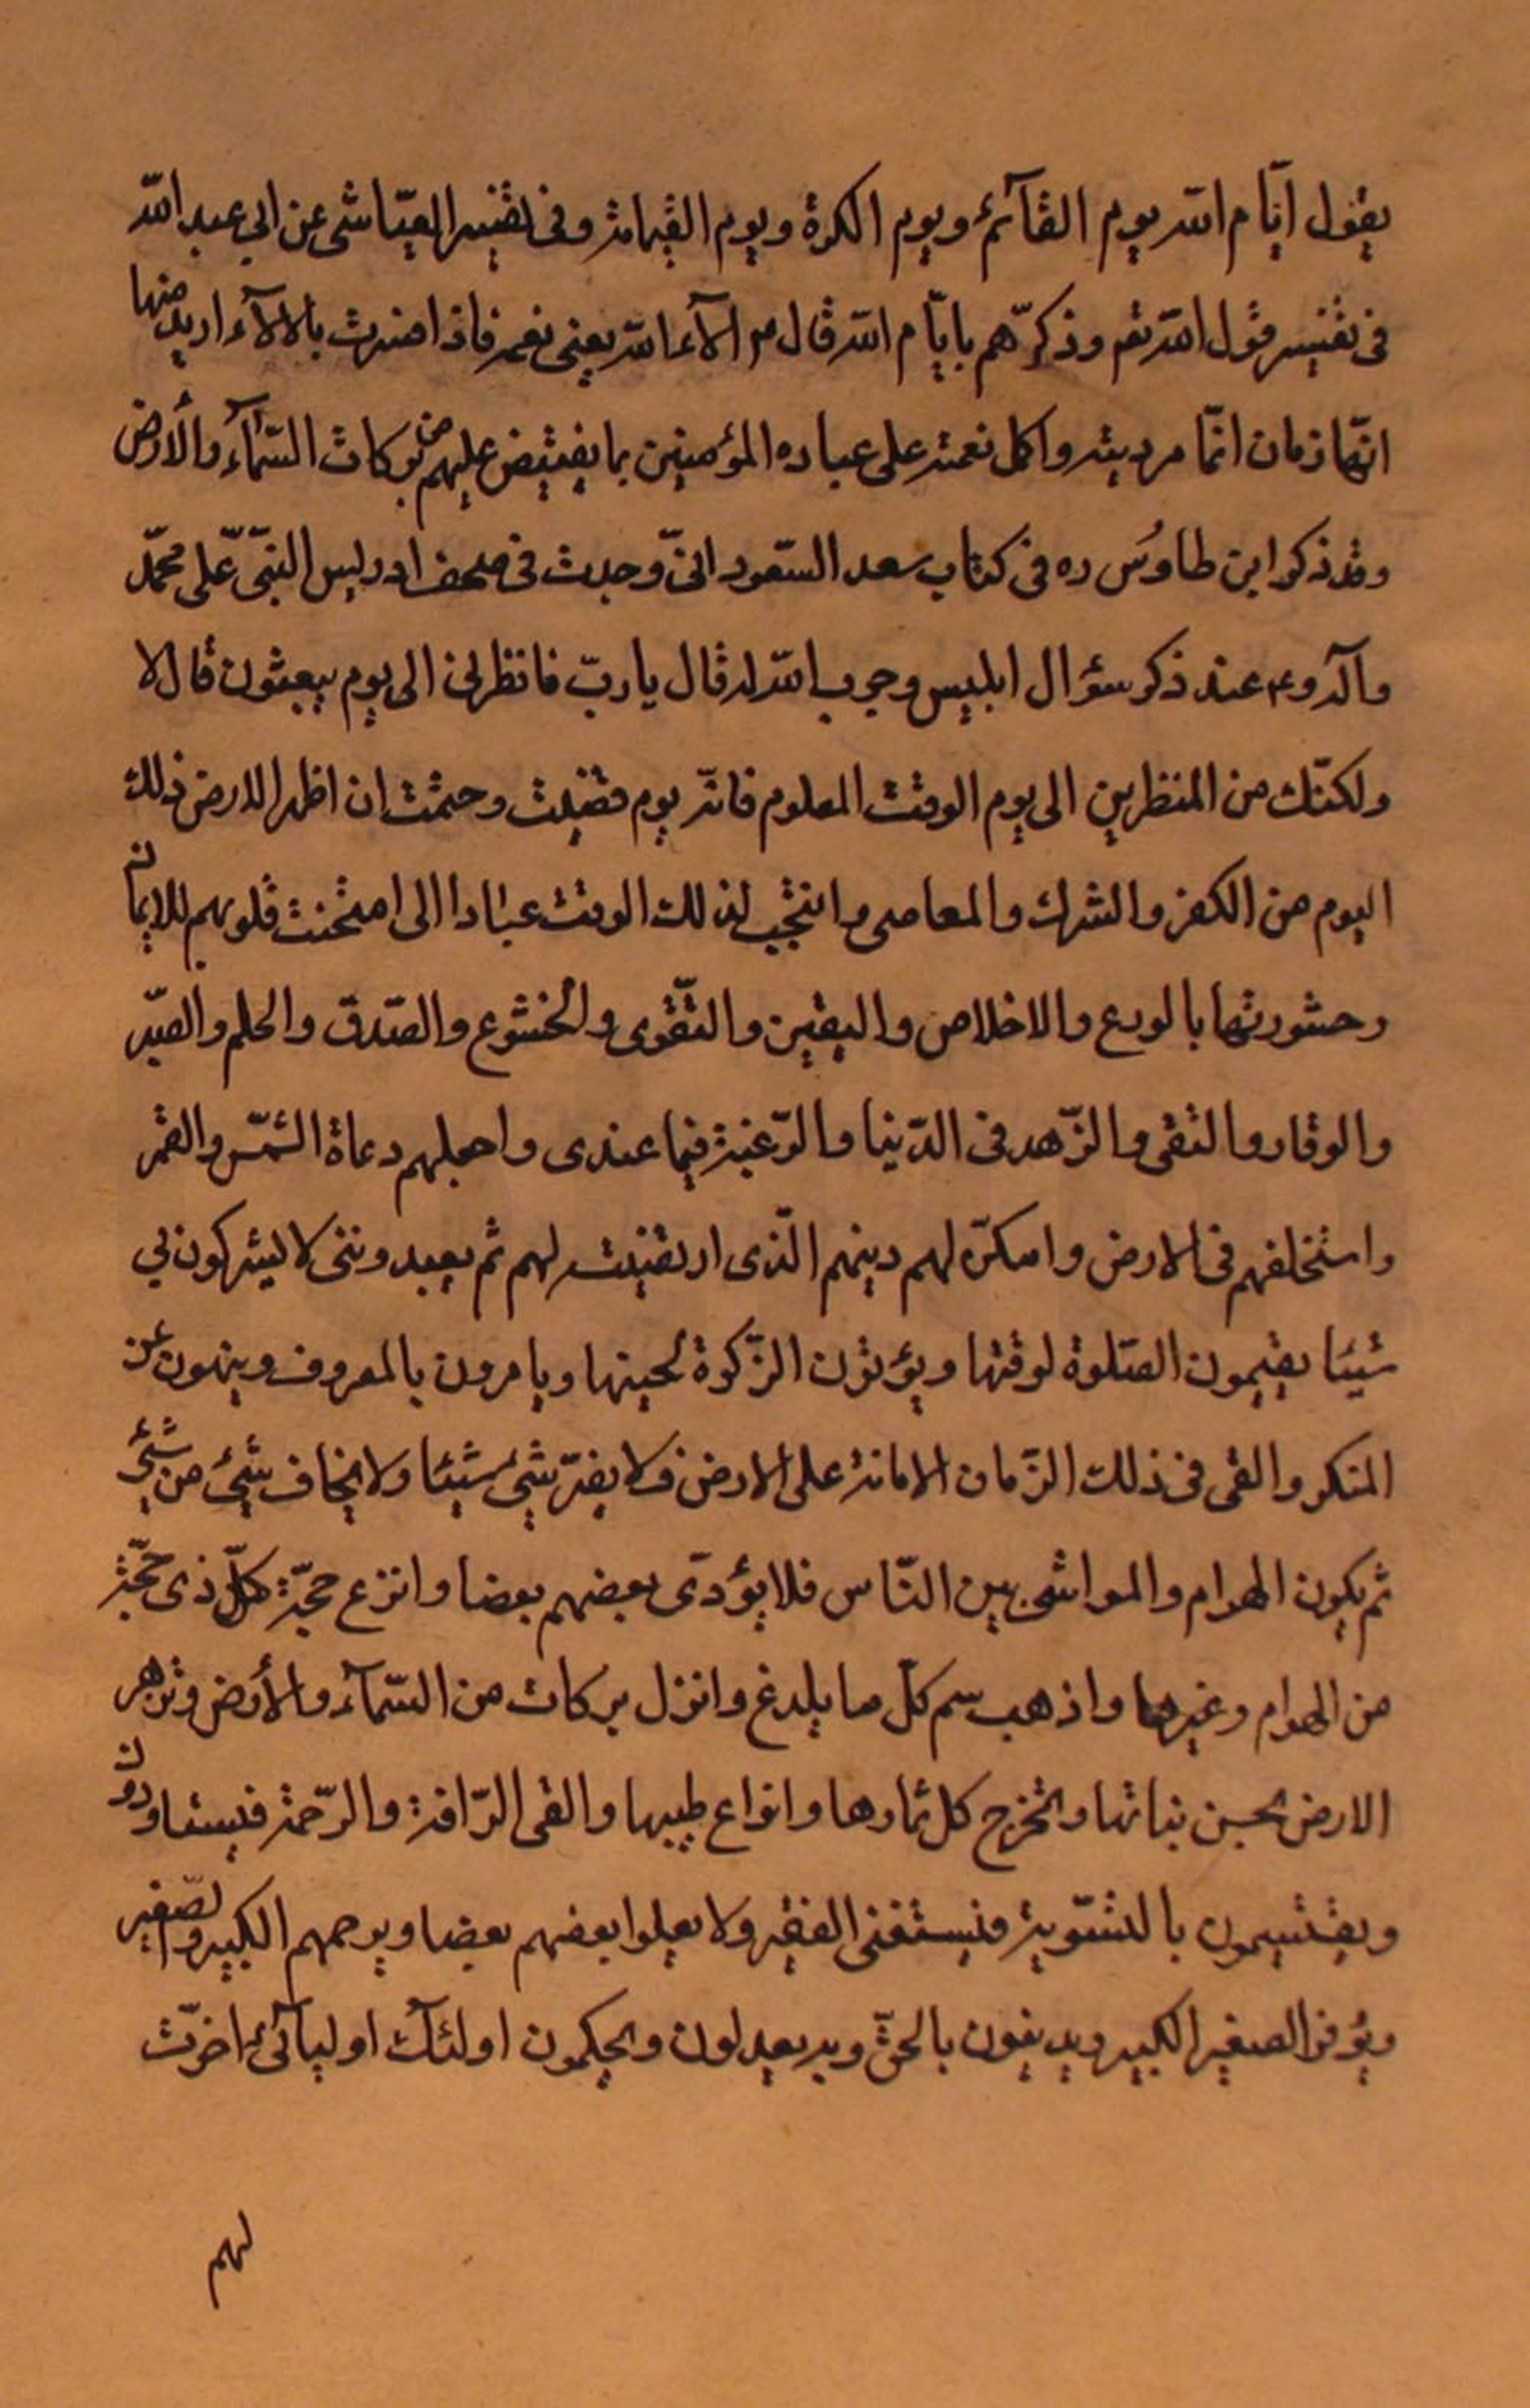 يقول ايّام الله يوم القآئمؑ ويوم الكرة ويوم القيامة وفى تفسير العيّاشى عن ابي عبد الله
فى تفسير قول الله تعم وذكرّهم بايّام الله قال م الآء الله يعنى نعمه فاذا اضفت بالالآء اريد منها
انّها زمان اتّمام دينه واكمل نعمته على عباده المؤمنين بما يفيض عليهم من بركات السّمآء والأرض
وقد ذكر ابن طاوُس ره فى كتاب سعد السّعود انىّ وجدت فى صحف ادريس النبّى على محمّد
وآله وع عند ذكر سؤال ابليس وجوب الله له قال يا ربّ فانظرنى الى يوم يبعثون قال لا
ولكنّك من المنظرين الى يوم الوقت المعلوم فانّه يوم قضيت وحتمت ان اطهر الارض ذلك
اليوم من الكفر والشرك والمعاصى وانتجب لذلك الوقت عبادا الى امتحنت قلوبهم للايمان
وحشورتها بالورع والاخلاص واليقين والتّقوى والخشوع والصّدق والحلم والصّبر
والوقار والتقى والزّهد فى الدّنيا والرّغبة فيما عندى واجعلهم دعاة الشّمس والقمر
واستخلفهم فى الارض وامكنّ لهم دينهم الّذى ارتضيت لهم ثم يعبدوننى لا يشركون بي
شيئا يقيمون الصّلوة لوقتها ويؤتون الزّكوة لحينها ويامرون بالمعروف وينهون عن
المنكر والقى فى ذلك الزّمان الامانة على الارض فلا يضرّ شئ شيئا ولا يخاف شئ من شئ
ثم يكون الهوام والمواشى بين النّاس فلا يؤدى بعضهم بعضا وانزع حجّة كلّ ذى حجّة
من الهوام وغيرها واذهب سم كلّ ما يلدغ وانزل بركات من السّمآء والأرض وتزهر
الارض بحسن نباتها وتخرج كل ثمارها وانواع طيبها والقى الرّافة والرّحمة فيستاوون
ويقتسيمون بالتسّوية فيستغنى الفقير ولا يعلوا بعضهم بعضا ويرحمهم الكبير والصّغير
ويؤقر الصغير الكبير ويدينون بالحقّ وبه يعدلون ويحكمون اولئك اوليآئى اخرّت
لهم